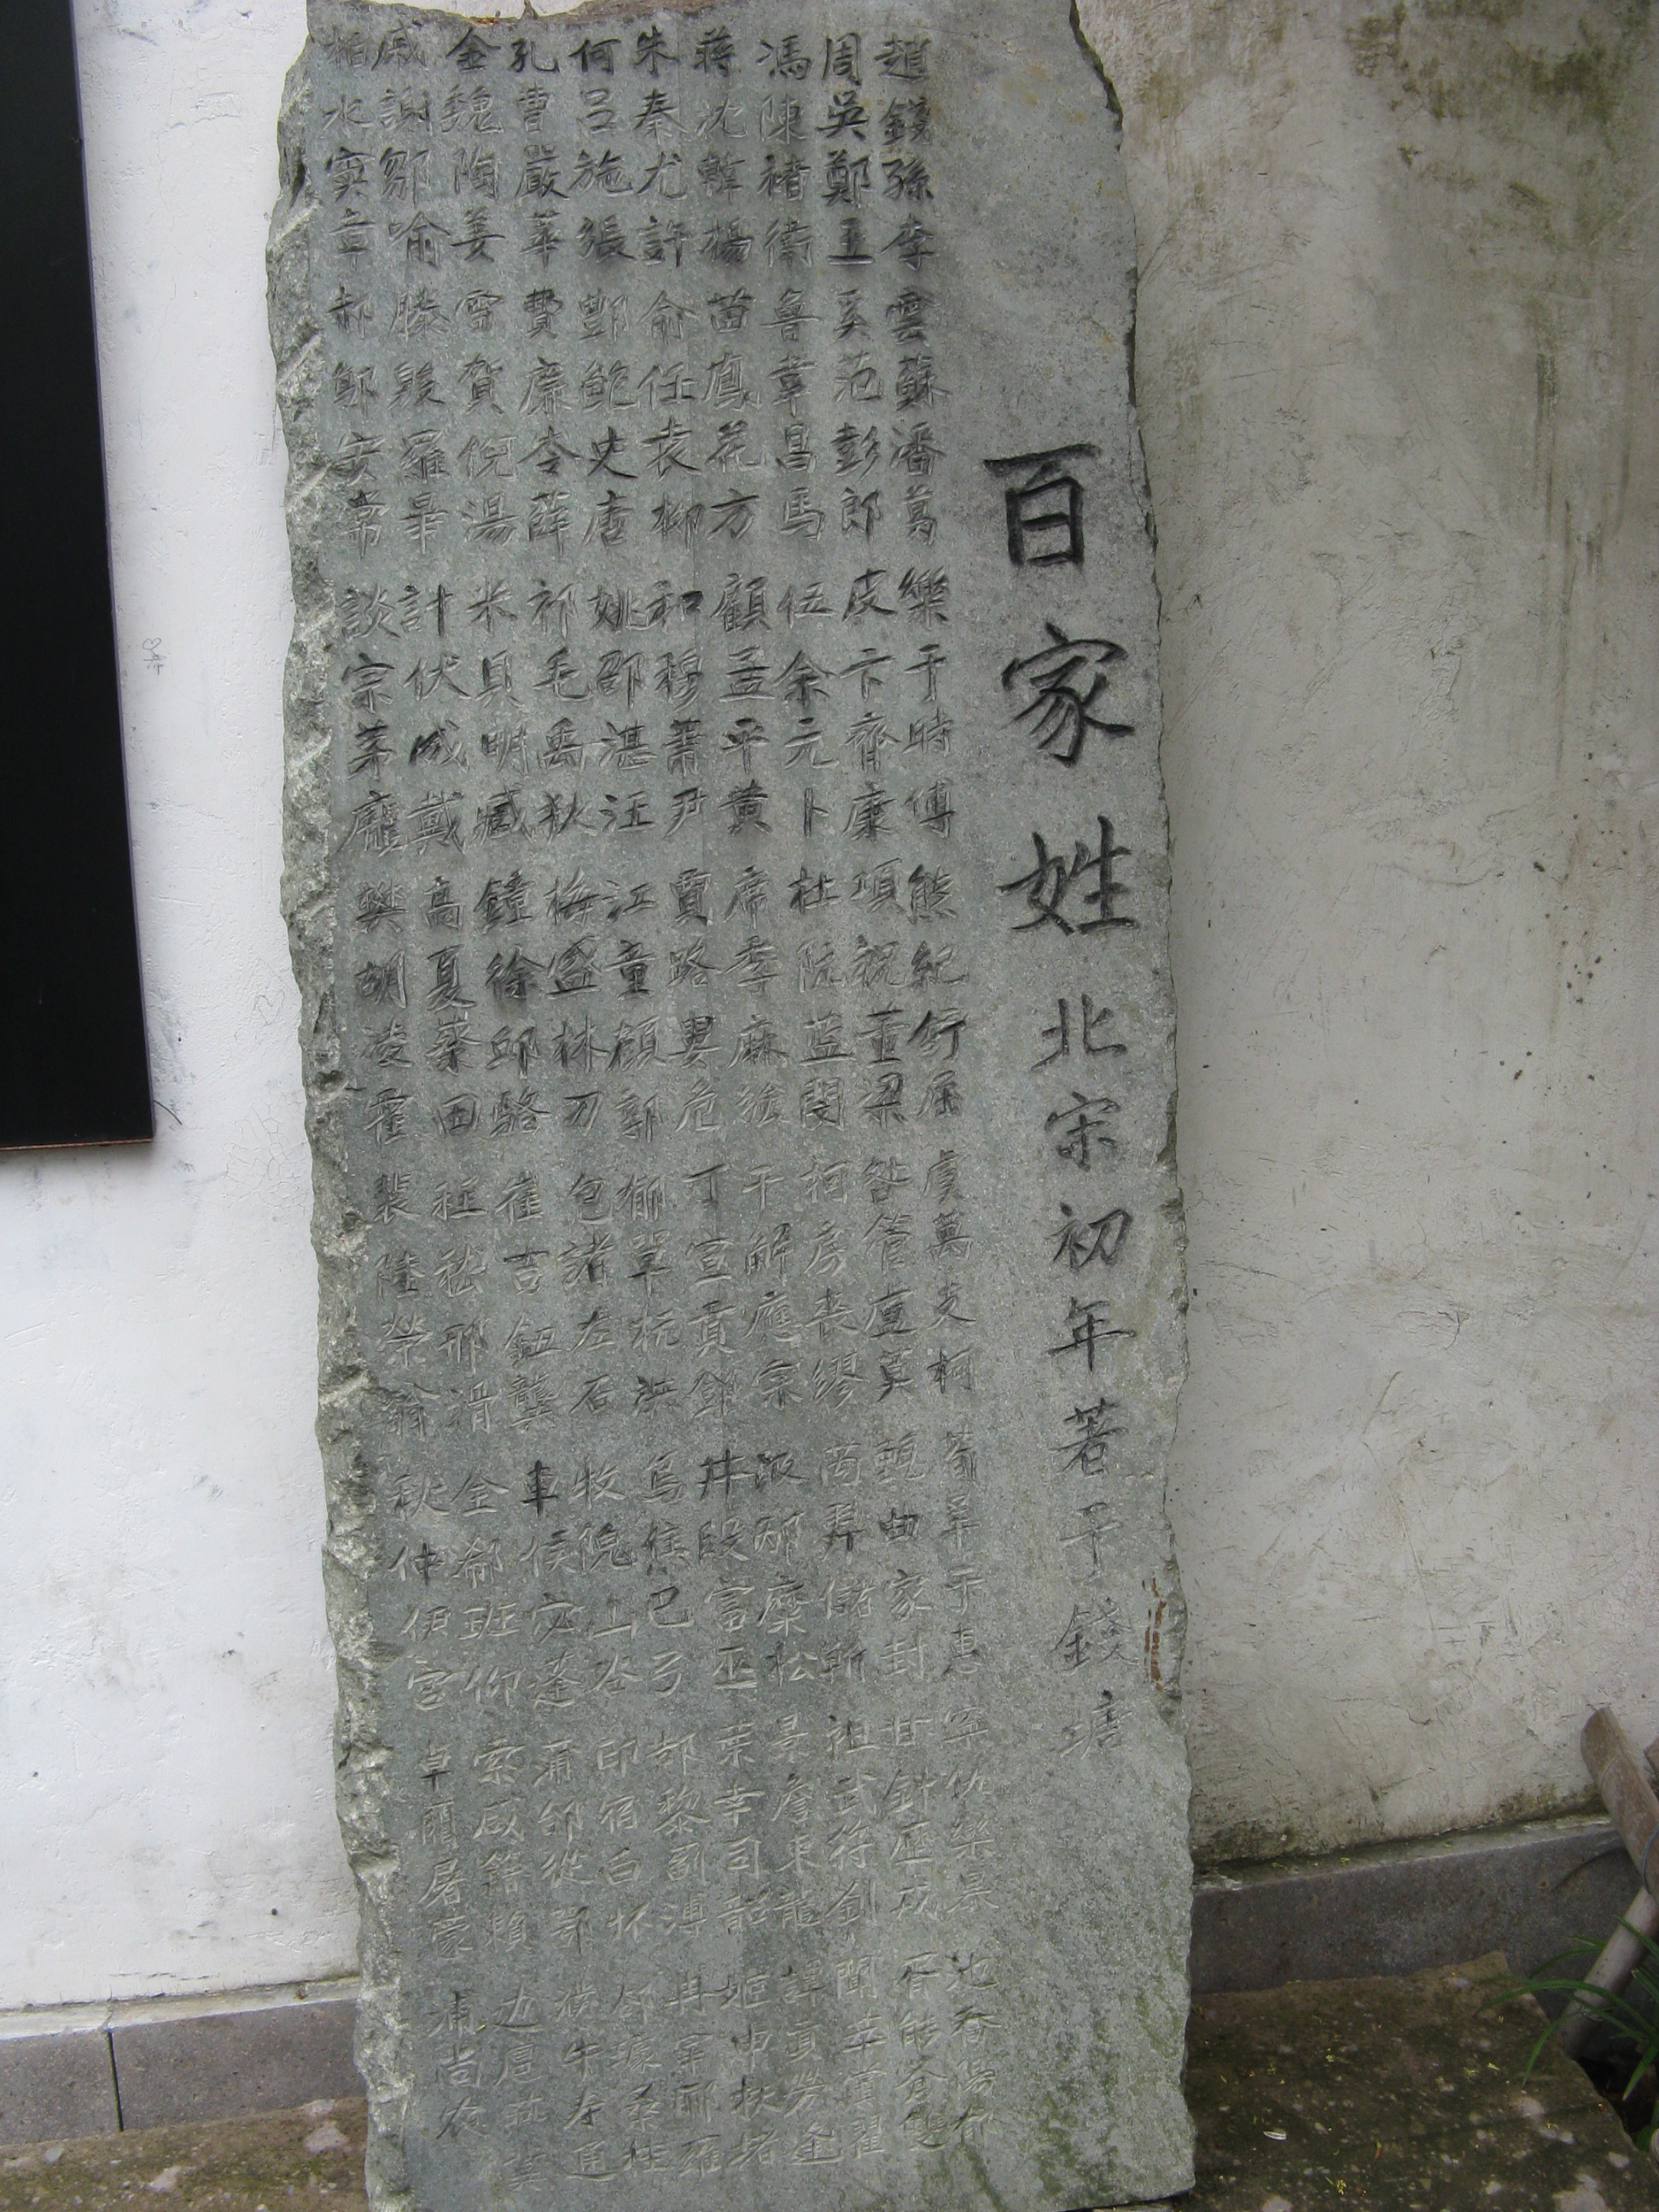 百家姓 北宋初年著于錢塘
趙錢孫李 雲蘇潘葛 樂于時傅 熊紀舒屈 虞萬支柯 荀羊于惠 仇欒 池喬陽郁
周吳鄭王 奚范彭郎 皮卞齊康 項祝董梁 咎管盧莫 甄曲家封 甘鈄戎 胥能蒼雙
馮陳褚衛 魯韋昌馬 伍余元卜 杜阮蓝閔 柯房裘繆 芮羿儲靳 祖武符劉 聞莘黨翟
蔣沈韓楊 苗鳳花方 顧孟平黃 席季麻強 干解應宗 汲邴糜松 景詹束龍 譚貢勞逄
朱秦尤許 俞任袁柳 和穆蕭尹 賈路婁危 丁宣賁鄧 井段富巫 葉幸司韶 姬申扶堵
何呂施張 酆鮑史唐 姚邵湛汪 江童顏郭 郁單杭洪 烏焦巴弓 郜黎薊溥 冉宰酈雍
孔曹嚴華 費廉岑薛 祁毛禹狄 梅盛林刀 包諸左石 牧隗山谷 印宿白怀 郤璩桑桂
金魏陶姜 雷賀倪湯 米貝明臧 鐘徐邱駱 崔吉鈕龔 車侯宓蓬 蒲邰從鄂 濮牛寿通
戚謝鄒喻 滕殷羅畢 計伏成戴 高夏蔡田 程嵇邢滑 全郗班仰 索咸籍賴 边扈燕冀
柏水竇章 郝鄔安常 談宗茅龐 樊胡凌霍 裴陸榮翁 秋仲伊宮 卓藺屠蒙 浦尚农